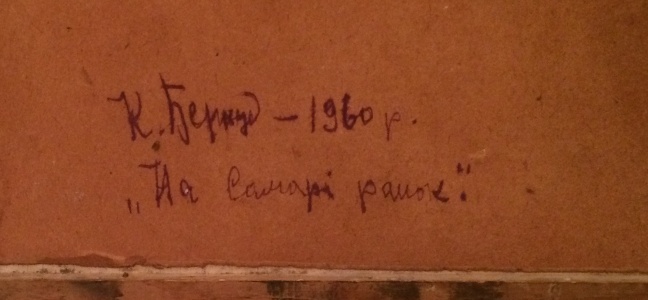 К. – 1960 р.
„На Самарі ранок".